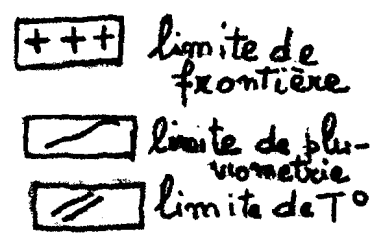 + + + limite de
frontière
limite de plu-
viometrie
limite de T°